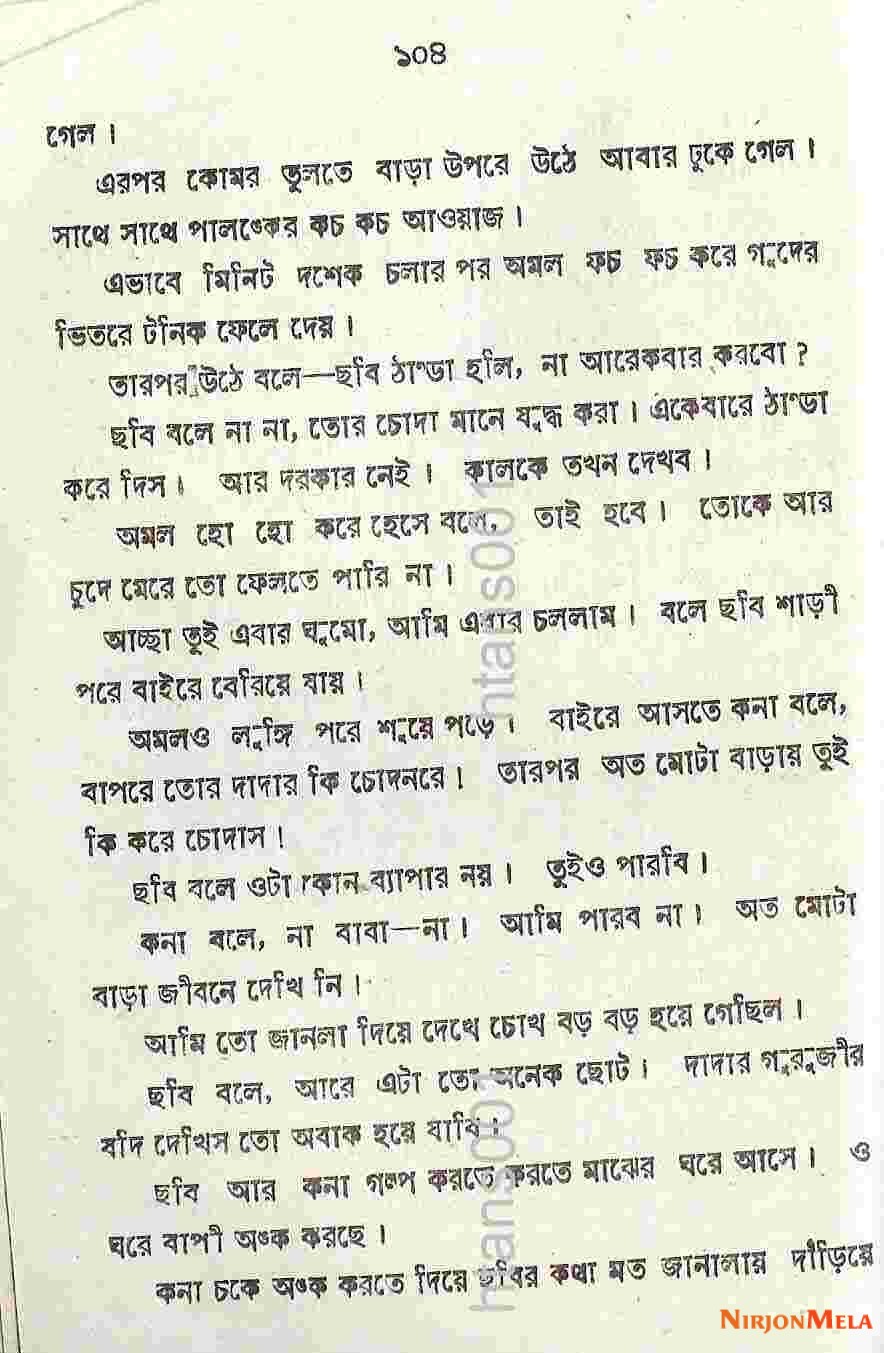 ১০৪
গেল ।
এরপর কোমর তুলতে বাড়া উপরে উঠে আবার ঢুকে গেল ।
সাথে সাথে পালঙ্কের কচ কচ আওয়াজ ।
এভাবে মিনিট দশেক চলার পর অমল ফচ ফচ করে গুদের
ভিতরে টনিক ফেলে দেয় ।
তারপর উঠে বলে—ছবি ঠাণ্ডা হলি, না আরেকবার করবো ?
ছবি বলে না না, তোর চোদা মানে যুদ্ধ করা । একেবারে ঠাণ্ডা
করে দিস । আর দরকার নেই । কালকে তখন দেখব ।
অমল হো হো করে হেসে বলে, তাই হবে । তোকে আর
চুদে মেরে তো ফেলতে পারি না ।
আচ্ছা তুই এবার ঘুমো, আমি এবার চললাম । বলে ছবি শাড়ী
পরে বাইরে বেরিয়ে যায় ।
অমলও লুঙ্গি পরে শুয়ে পড়ে । বাইরে আসতে কনা বলে,
বাপরে তোর দাদার কি চোদনরে ! তারপর অত মোটা বাড়ায় তুই
কি করে চোদাস !
ছবি বলে ওটা কোন ব্যাপার নয় । তুইও পারবি ।
কনা বলে, না বাবা—না । আমি পারব না । অত মোটা
বাড়া জীবনে দেখি নি ।
আমি তো জানলা দিয়ে দেখে চোখ বড় বড় হয়ে গেছিল ।
ছবি বলে, আরে এটা তো অনেক ছোট । দাদার গুরুজীর
যদি দেখিস তো অবাক হয়ে যাবি ।
ছবি আর কনা গল্প করতে করতে মাঝের ঘরে আসে । ও
ঘরে বাপী অঙ্ক করছে ।
কনা চকে অঙ্ক করতে দিয়ে ছবির কথা মত জানালায় দাঁড়িয়ে
htans001
htans001
NIRJONMELA